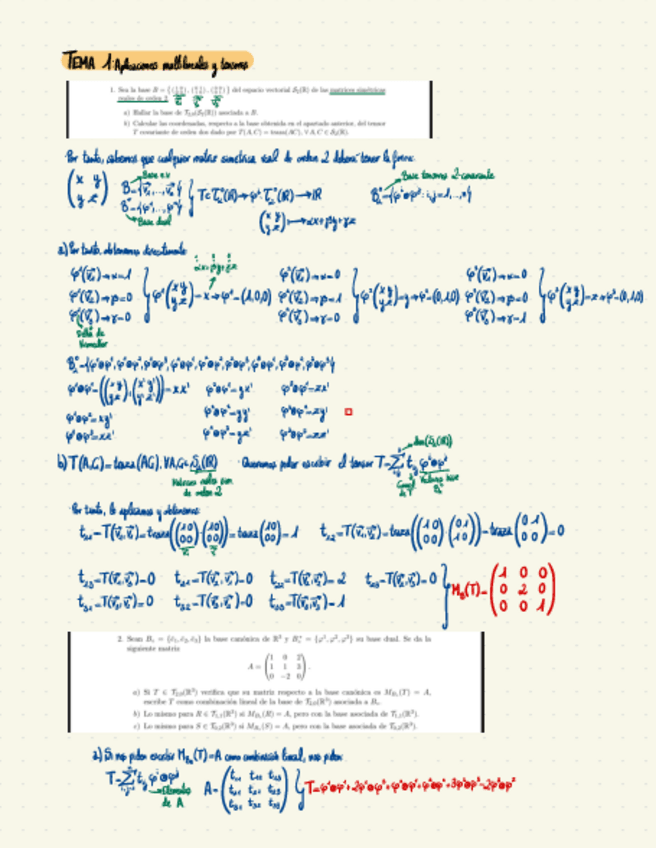 TEMA 1: Aplicaciones multilineales y tensores
1. Sea la base B = {(1 0 / 0 0), (0 1 / 1 0), (0 0 / 0 1)} del espacio vectorial S₂(ℝ) de las matrices simétricas
reales de orden 2.
a) Hallar la base de T₂,₀(S₂(ℝ)) asociada a B.
b) Calcular las coordenadas, respecto a la base obtenida en el apartado anterior, del tensor
T covariante de orden dos dado por T(A,C) = traza(AC), ∀ A,C ∈ S₂(ℝ).
Por tanto, sabemos que cualquier matriz simetrica real de orden 2 deberá tener la forma:
Base e.v
Base tensores 2-covariante
(x y / y z)
Base dual
(x y / y z) → αx+βy+γz
a) Por tanto, obtenemos directamente
αx+βy+γz
φ¹(v₁)→α=1
φ¹(v₂)→β=0
φ¹(v₃)→γ=0
φ¹(x y / y z)=x→φ¹=(1,0,0)
φ²(v₁)→α=0
φ²(v₂)→β=1
φ²(v₃)→γ=0
φ²(x y / y z)=y→φ²=(0,1,0)
φ³(v₁)→α=0
φ³(v₂)→β=0
φ³(v₃)→γ=1
Delta de
Kronecker
φ¹⊗φ¹=((x y / y z),(x' y' / y' z'))=xx' φ²⊗φ¹=yx' φ³⊗φ¹=zx'
φ¹⊗φ²=xy' φ²⊗φ²=yy' φ³⊗φ²=zy'
φ¹⊗φ³=xz' φ²⊗φ³=yz' φ³⊗φ³=zz'
dim(S₂(ℝ))
b) T(A,C)=traza(AC), ∀A,C∈S₂(ℝ) Queremos poder escribir el tensor T=Σ tᵢⱼ φⁱ⊗φʲ
Matrices reales sim.
de orden 2
Valores base
Por tanto, lo aplicamos y obtenemos:
t₁₁=T(v₁,v₁)=traza((1 0 / 0 0)·(1 0 / 0 0))=traza(1 0 / 0 0)=1 t₁₂=T(v₁,v₂)=traza((1 0 / 0 0)·(0 1 / 1 0))=traza(0 1 / 0 0)=0
t₁₃=T(v₁,v₃)=0 t₂₁=T(v₂,v₁)=0 t₂₂=T(v₂,v₂)=2 t₂₃=T(v₂,v₃)=0
t₃₁=T(v₃,v₁)=0 t₃₂=T(v₃,v₂)=0 t₃₃=T(v₃,v₃)=1
M_B(T)=(1 0 0 / 0 2 0 / 0 0 1)
2. Sean B_c = {e₁, e₂, e₃} la base canónica de ℝ³ y B_c* = {φ¹, φ², φ³} su base dual. Se da la
siguiente matriz
A = (1 0 2 / 1 1 3 / 0 −2 0).
a) Si T ∈ T₂,₀(ℝ³) verifica que su matriz respecto a la base canónica es M_Bc(T) = A,
escribe T como combinación lineal de la base de T₂,₀(ℝ³) asociada a B_c.
b) Lo mismo para R ∈ T₁,₁(ℝ³) si M_Bc(R) = A, pero con la base asociada de T₁,₁(ℝ³).
c) Lo mismo para S ∈ T₀,₂(ℝ³) si M_Bc(S) = A, pero con la base asociada de T₀,₂(ℝ³).
a) Si nos piden escribir M_Bc(T)=A como combinación lineal, nos piden:
T=Σ tᵢⱼ φⁱ⊗φʲ
Elementos
de A
A=(t₁₁ t₁₂ t₁₃ / t₂₁ t₂₂ t₂₃ / t₃₁ t₃₂ t₃₃)
T=φ¹⊗φ¹+2φ¹⊗φ³+φ²⊗φ¹+φ²⊗φ²+3φ²⊗φ³−2φ³⊗φ²